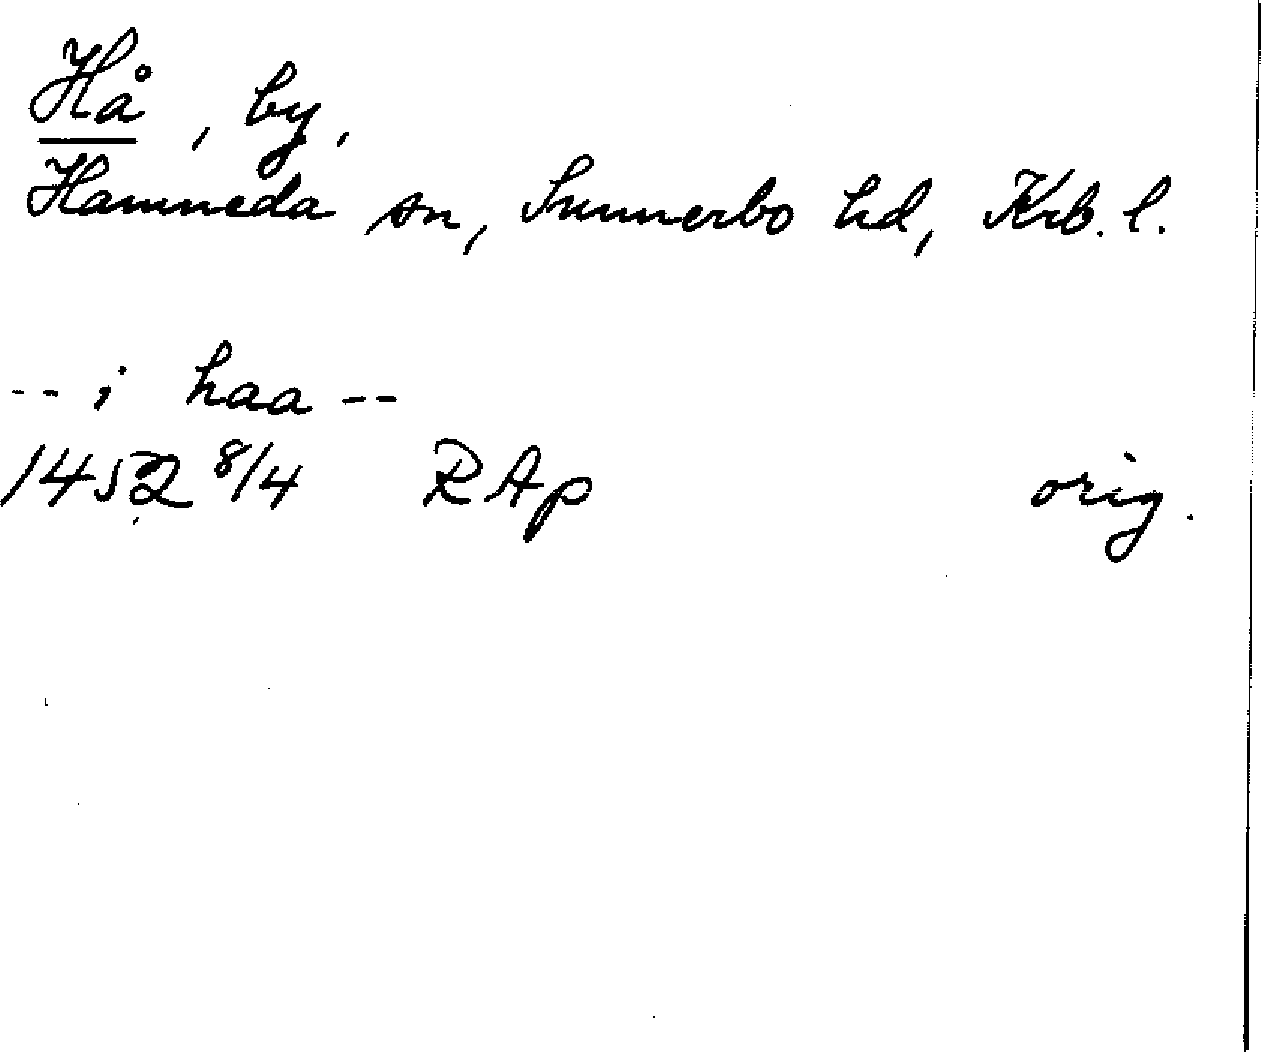 Hå, by,
Hamneda sn, Sunnerbo hd, Krb. l.
-- i haa --
1452 8/4 RAp orig.